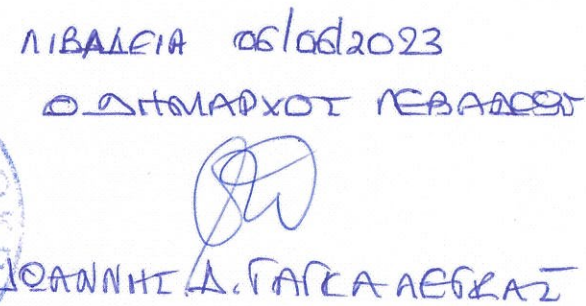 ΛΙΒΑΔΕΙΑ 06/06/2023
Ο ΔΗΜΑΡΧΟΣ ΛΕΒΑΔΕΩΝ
ΙΩΑΝΝΗΣ Δ. ΤΑΓΚΑΛΕΓΚΑΣ